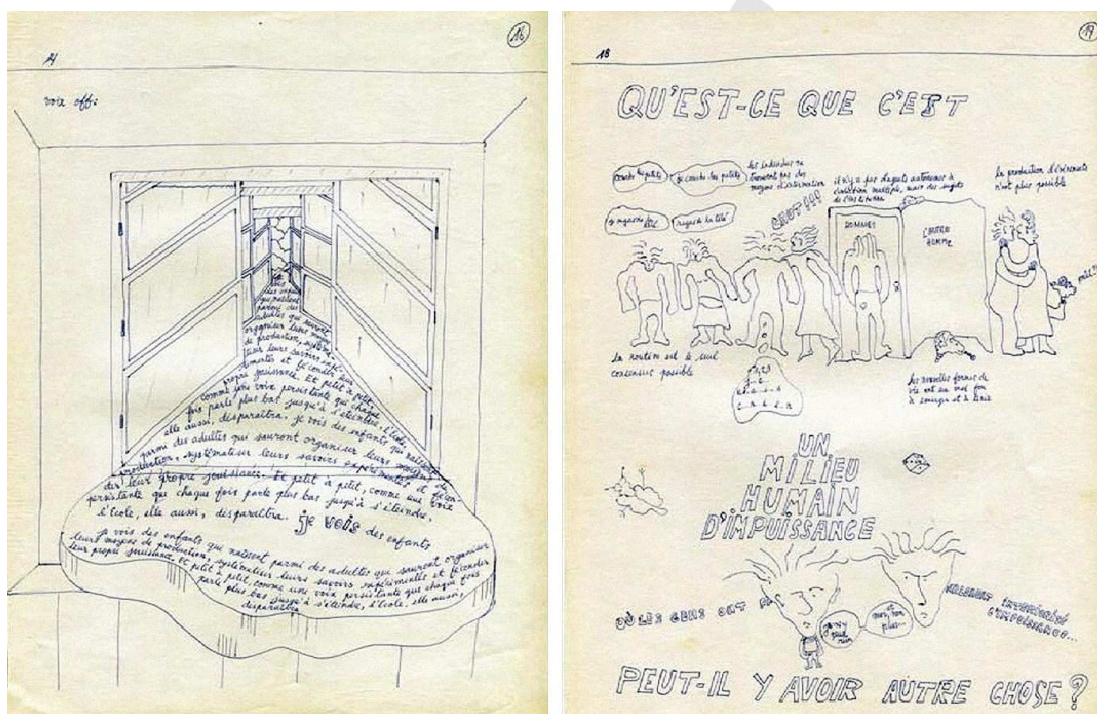 16
voix off:
des enfants
qui naissent
parmi des
adultes qui sauront
organiser leurs moyens
de production, systéma-
tiser leurs savoirs expéri-
mentés et féconder leur
propre jouissance. Et petit à petit,
comme une voix persistante qui chaque
fois parle plus bas jusqu'à s'éteindre, l'école,
elle aussi, disparaîtra. je vois des enfants qui naissent
parmi des adultes qui sauront organiser leurs moyens de
production, systématiser leurs savoirs expérimentés et fécon-
der leur propre jouissance. Et petit à petit, comme une voix
persistante que chaque fois parle plus bas jusqu'à s'éteindre,
l'école, elle aussi, disparaîtra. je vois des enfants
je vois des enfants qui naissent parmi des adultes qui sauront organiser
leurs moyens de production, systématiser leurs savoirs expérimentés et féconder
leur propre jouissance. Et petit à petit, comme une voix persistante que chaque fois
parle plus bas jusqu'à s'éteindre, l'école, elle aussi,
disparaîtra
18
19
QU'EST-CE QUE C'EST
couche les petits
je couche les petits
les individus ne
trouvent pas des
moyens d'information
il n'y a pas de sujets autonomes à
multiple, mais des sujets
la production d'événements
n'est plus possible
regarde la télé
CHUT!!!
HOMMES
L'AUTRE
HOMME
La routine est le seul
consensus possible
1,2,3
les nouvelles formes de
vie ont un mal fou
à émerger et à tenir
UN
MILIEU
HUMAIN
D'IMPUISSANCE
OÙ LES GENS ONT
ça n'y
peut
rien
et
moi, non
plus...
INTÉRIORISÉ
L'IMPUISSANCE...
PEUT-IL Y AVOIR AUTRE CHOSE ?